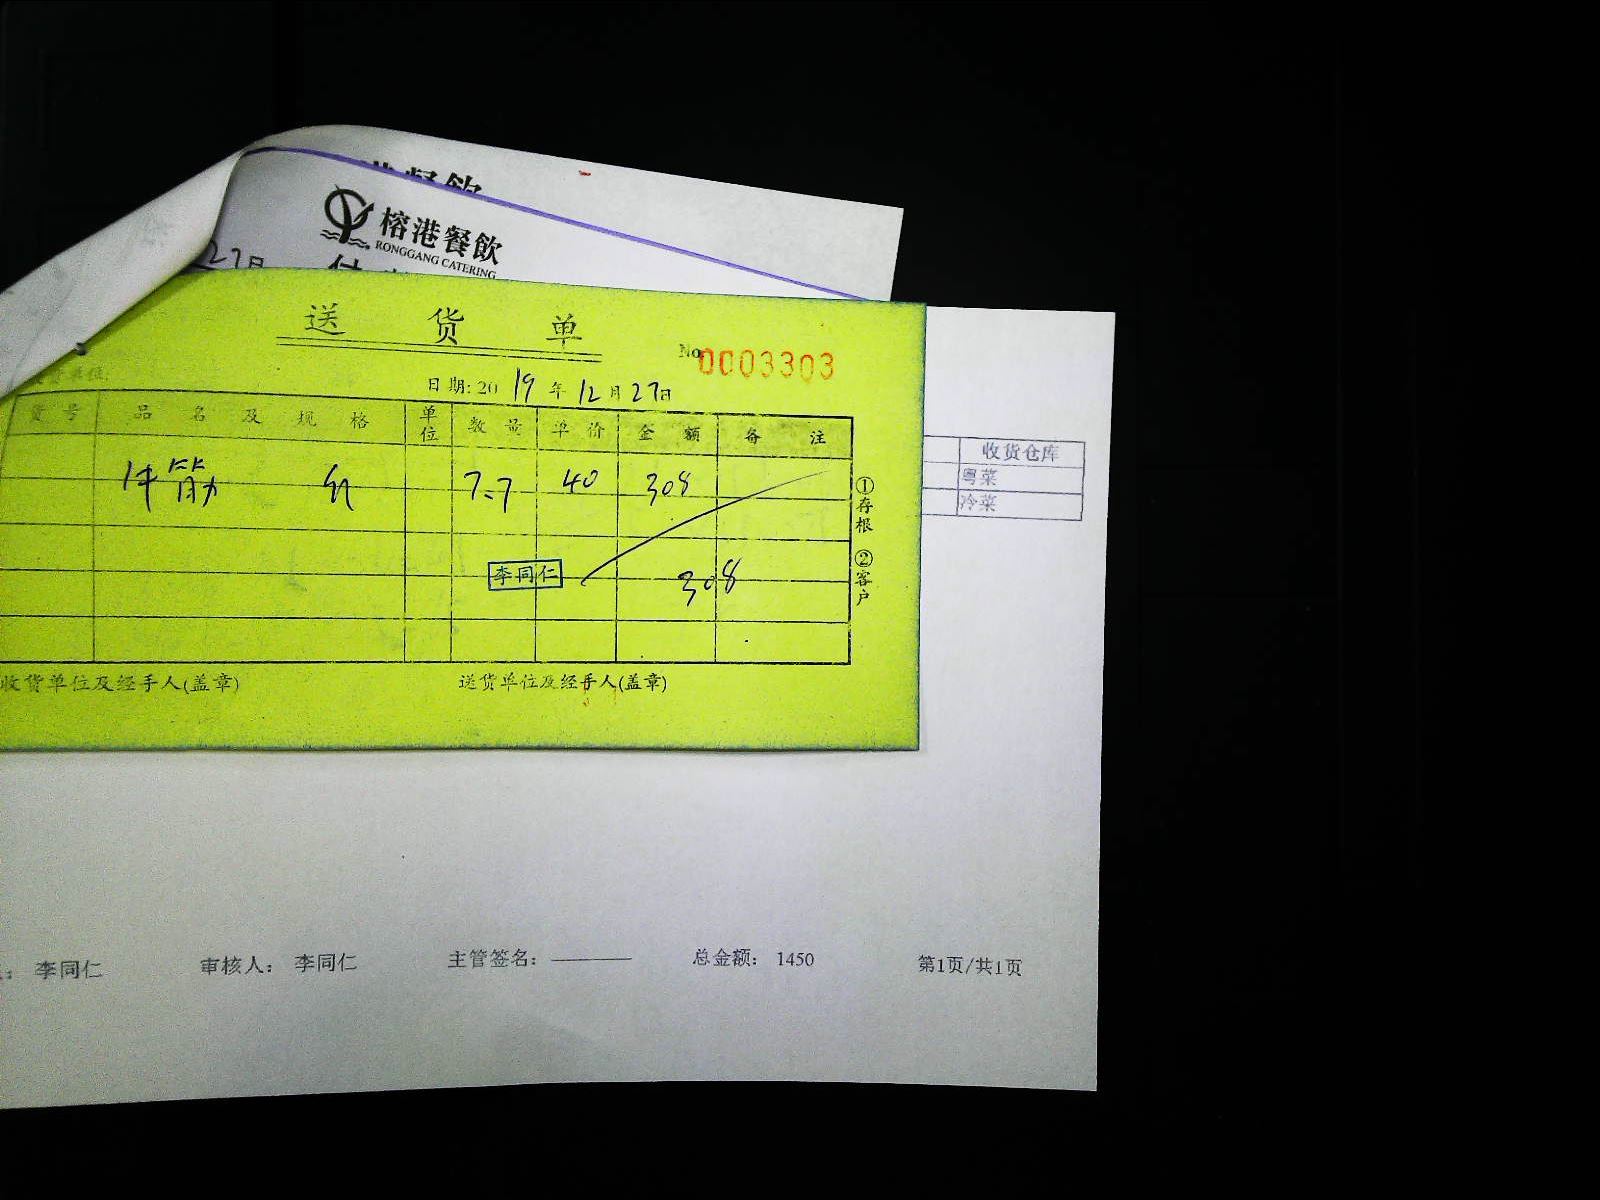 榕港餐飲
RONGGANG CATERING
27日
送货单
No 0003303
日期: 2019年12月27日
货号 品名及规格 单位 数量 单价 金额 备注
牛筋 7.7 40 308
李同仁
308
①存根 ②客户
收货单位及经手人(盖章) 送货单位及经手人(盖章)
收货仓库
粤菜
冷菜
李同仁 审核人: 李同仁 主管签名: 总金额: 1450 第1页/共1页